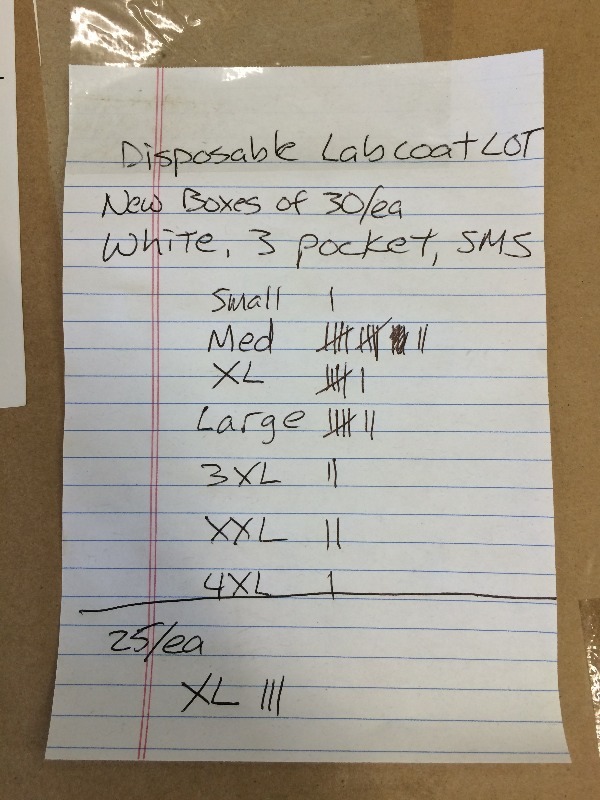 Disposable Lab coat LOT
New Boxes of 30/ea
White, 3 pocket, SMS
Small |
Med 卌 卌 ||
XL 卌 |
Large 卌 ||
3XL ||
XXL ||
4XL |
25/ea
XL |||